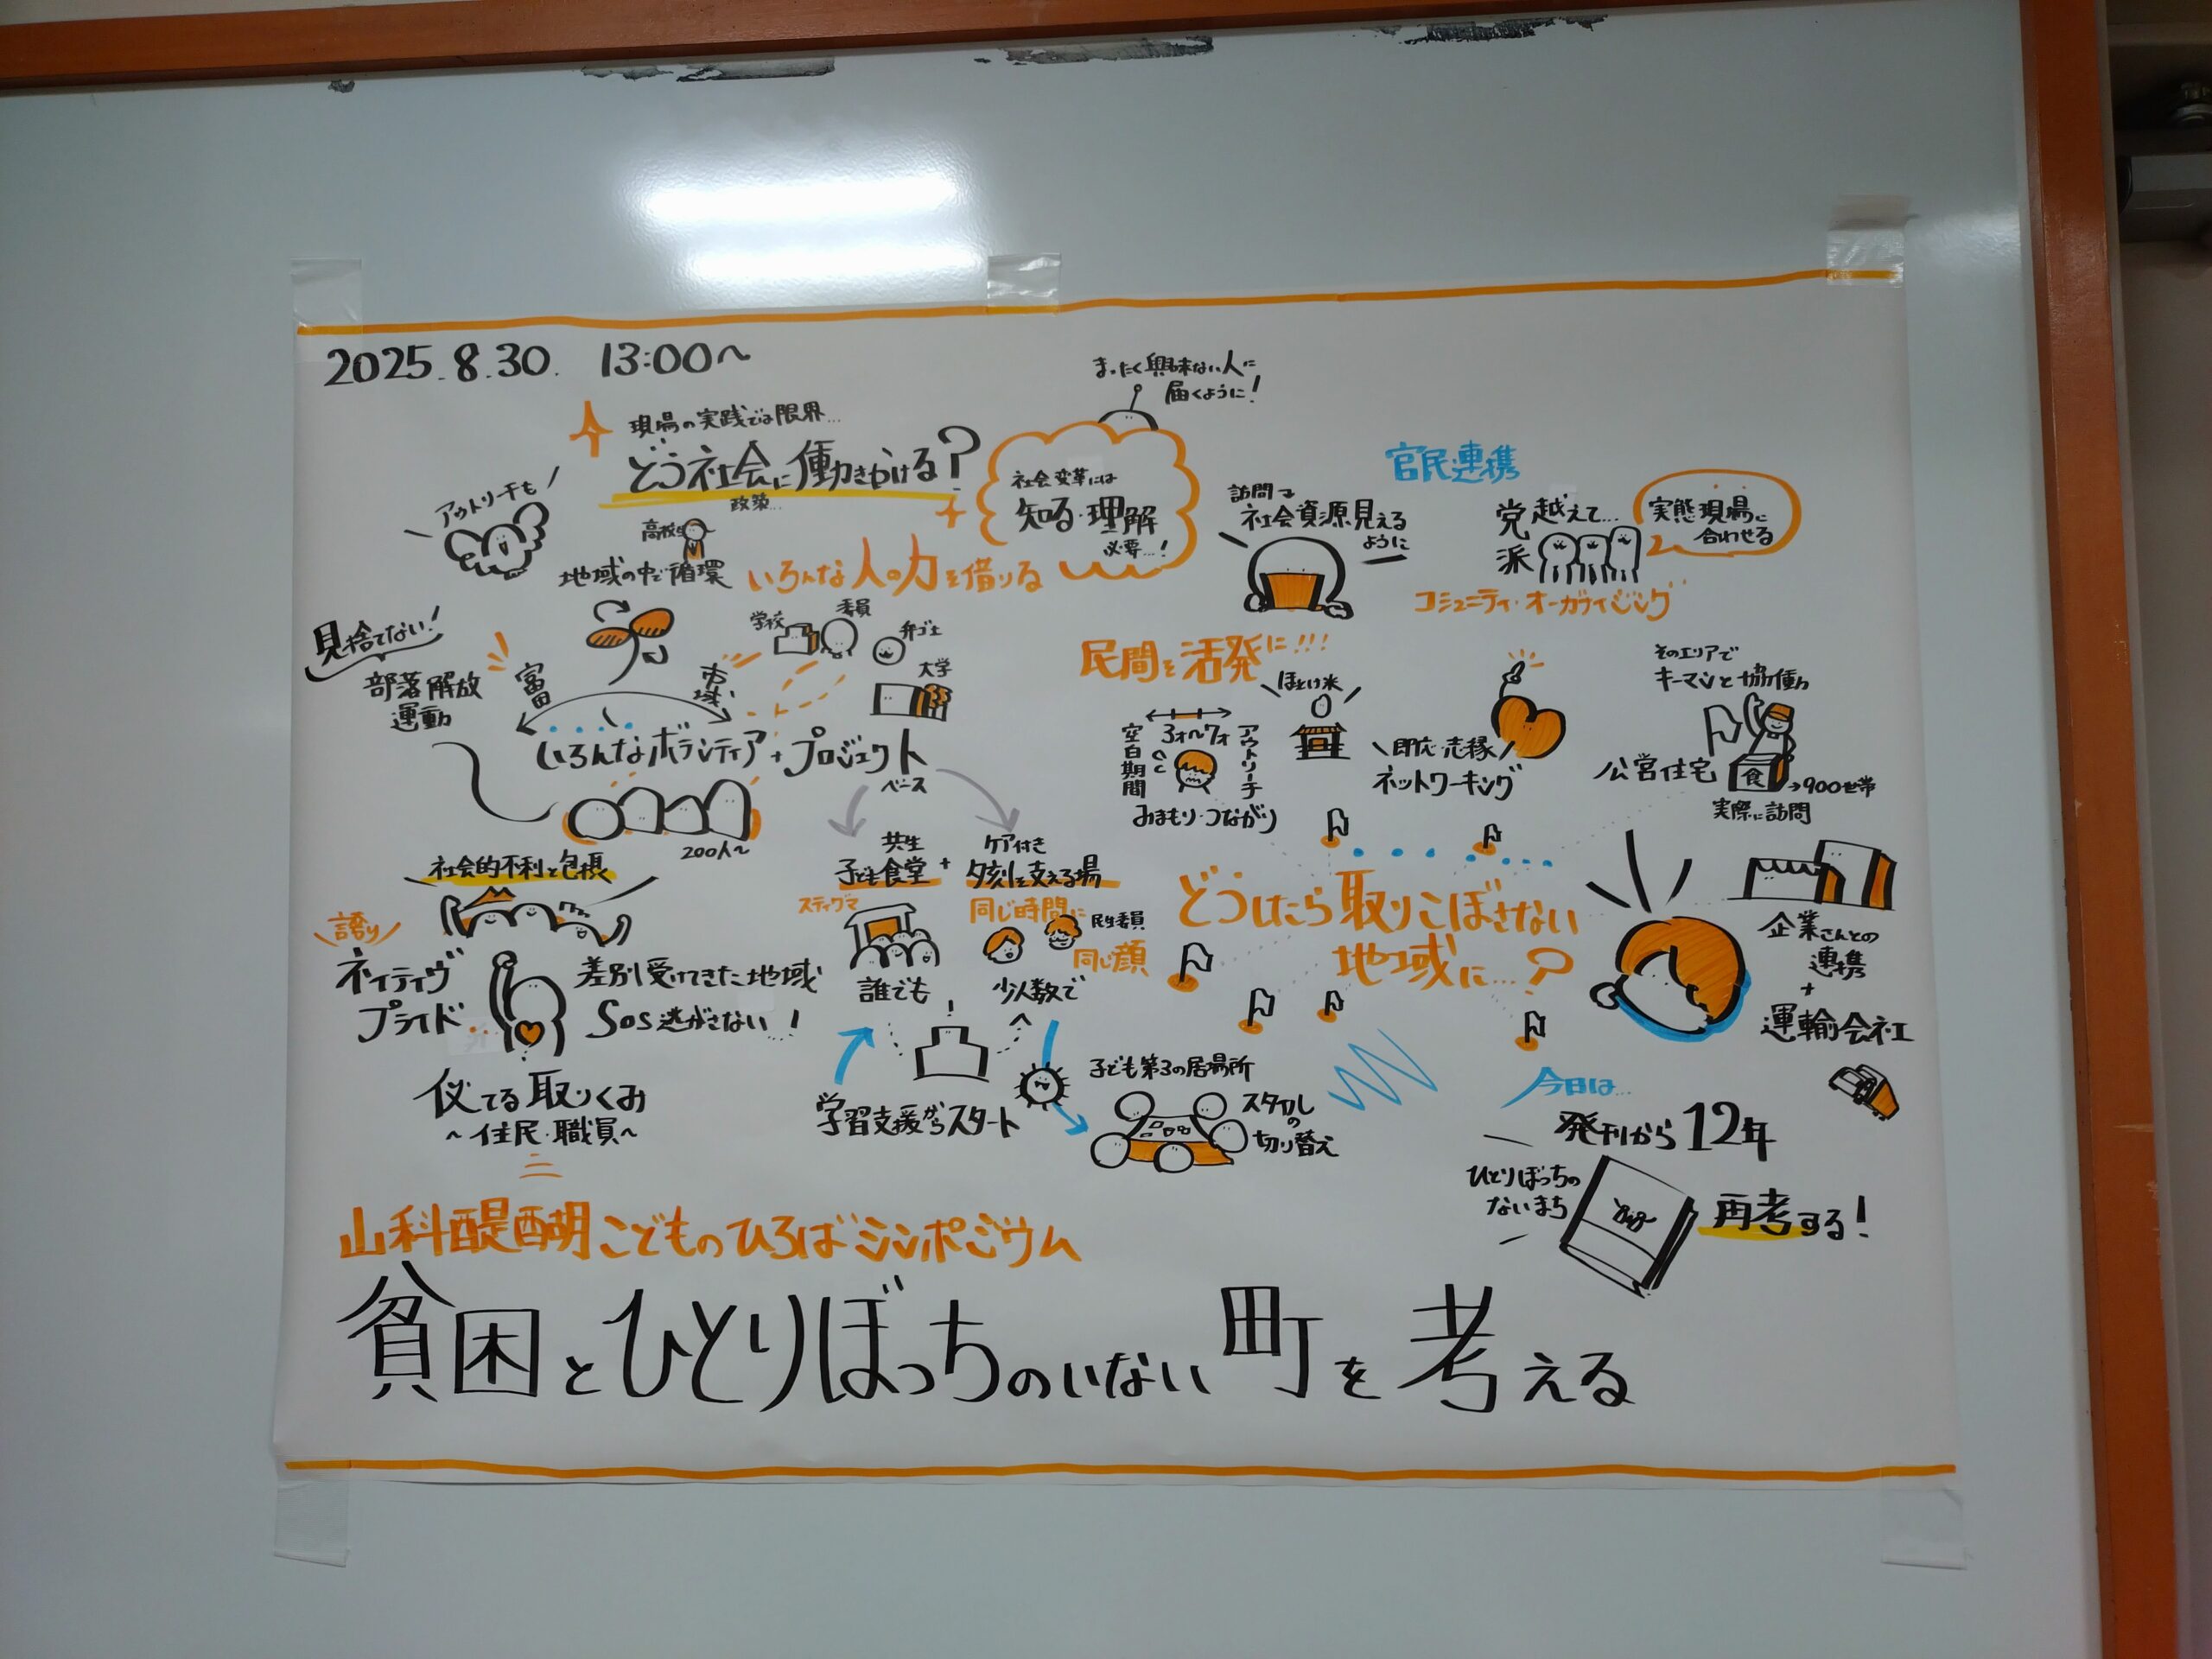 2025.8.30. 13:00〜
現場の実践では限界…
どう社会に働きかける?
政策…
アウトリーチも
高校生
地域の中で循環
いろんな人の力を借りる
まったく興味ない人に
届くように!
社会変革には
知る・理解
必要…!
官民連携
訪問で
社会資源見える
ように
党派
越えて…
実態現場に
合わせる
コミュニティ・オーガナイジング
見捨てない!
部落解放
運動
富田
市域
学校
委員
弁ゴ士
大学
いろんなボランティア+プロジェクト
ベース
200人〜
民間を活発に!!!
ほとけ米
空白期間
3才〜7才
アウトリーチ
みまもり・つながり
即応・志縁
ネットワーキング
そのエリアで
キーマンと協働
公営住宅
食
→900世帯
実際に訪問
社会的不利と包摂
誇り
ネイティヴ
プライド
差別受けてきた地域
SOS逃がさない!
似てる取りくみ
〜住民・職員〜
共生
子ども食堂
+
ケア付き
夕刻を支える場
スティグマ
同じ時間に
民生委員
同じ顔
誰でも
少人数で
学習支援からスタート
子ども第3の居場所
スタッフし
の
切り替え
どうしたら取りこぼさない
地域に…?
企業さんとの
連携
+
運輸会社
今日は…
発刊から12年
ひとりぼっちの
ないまち
再考する!
山科醍醐こどものひろばシンポジウム
貧困とひとりぼっちのいない町を考える